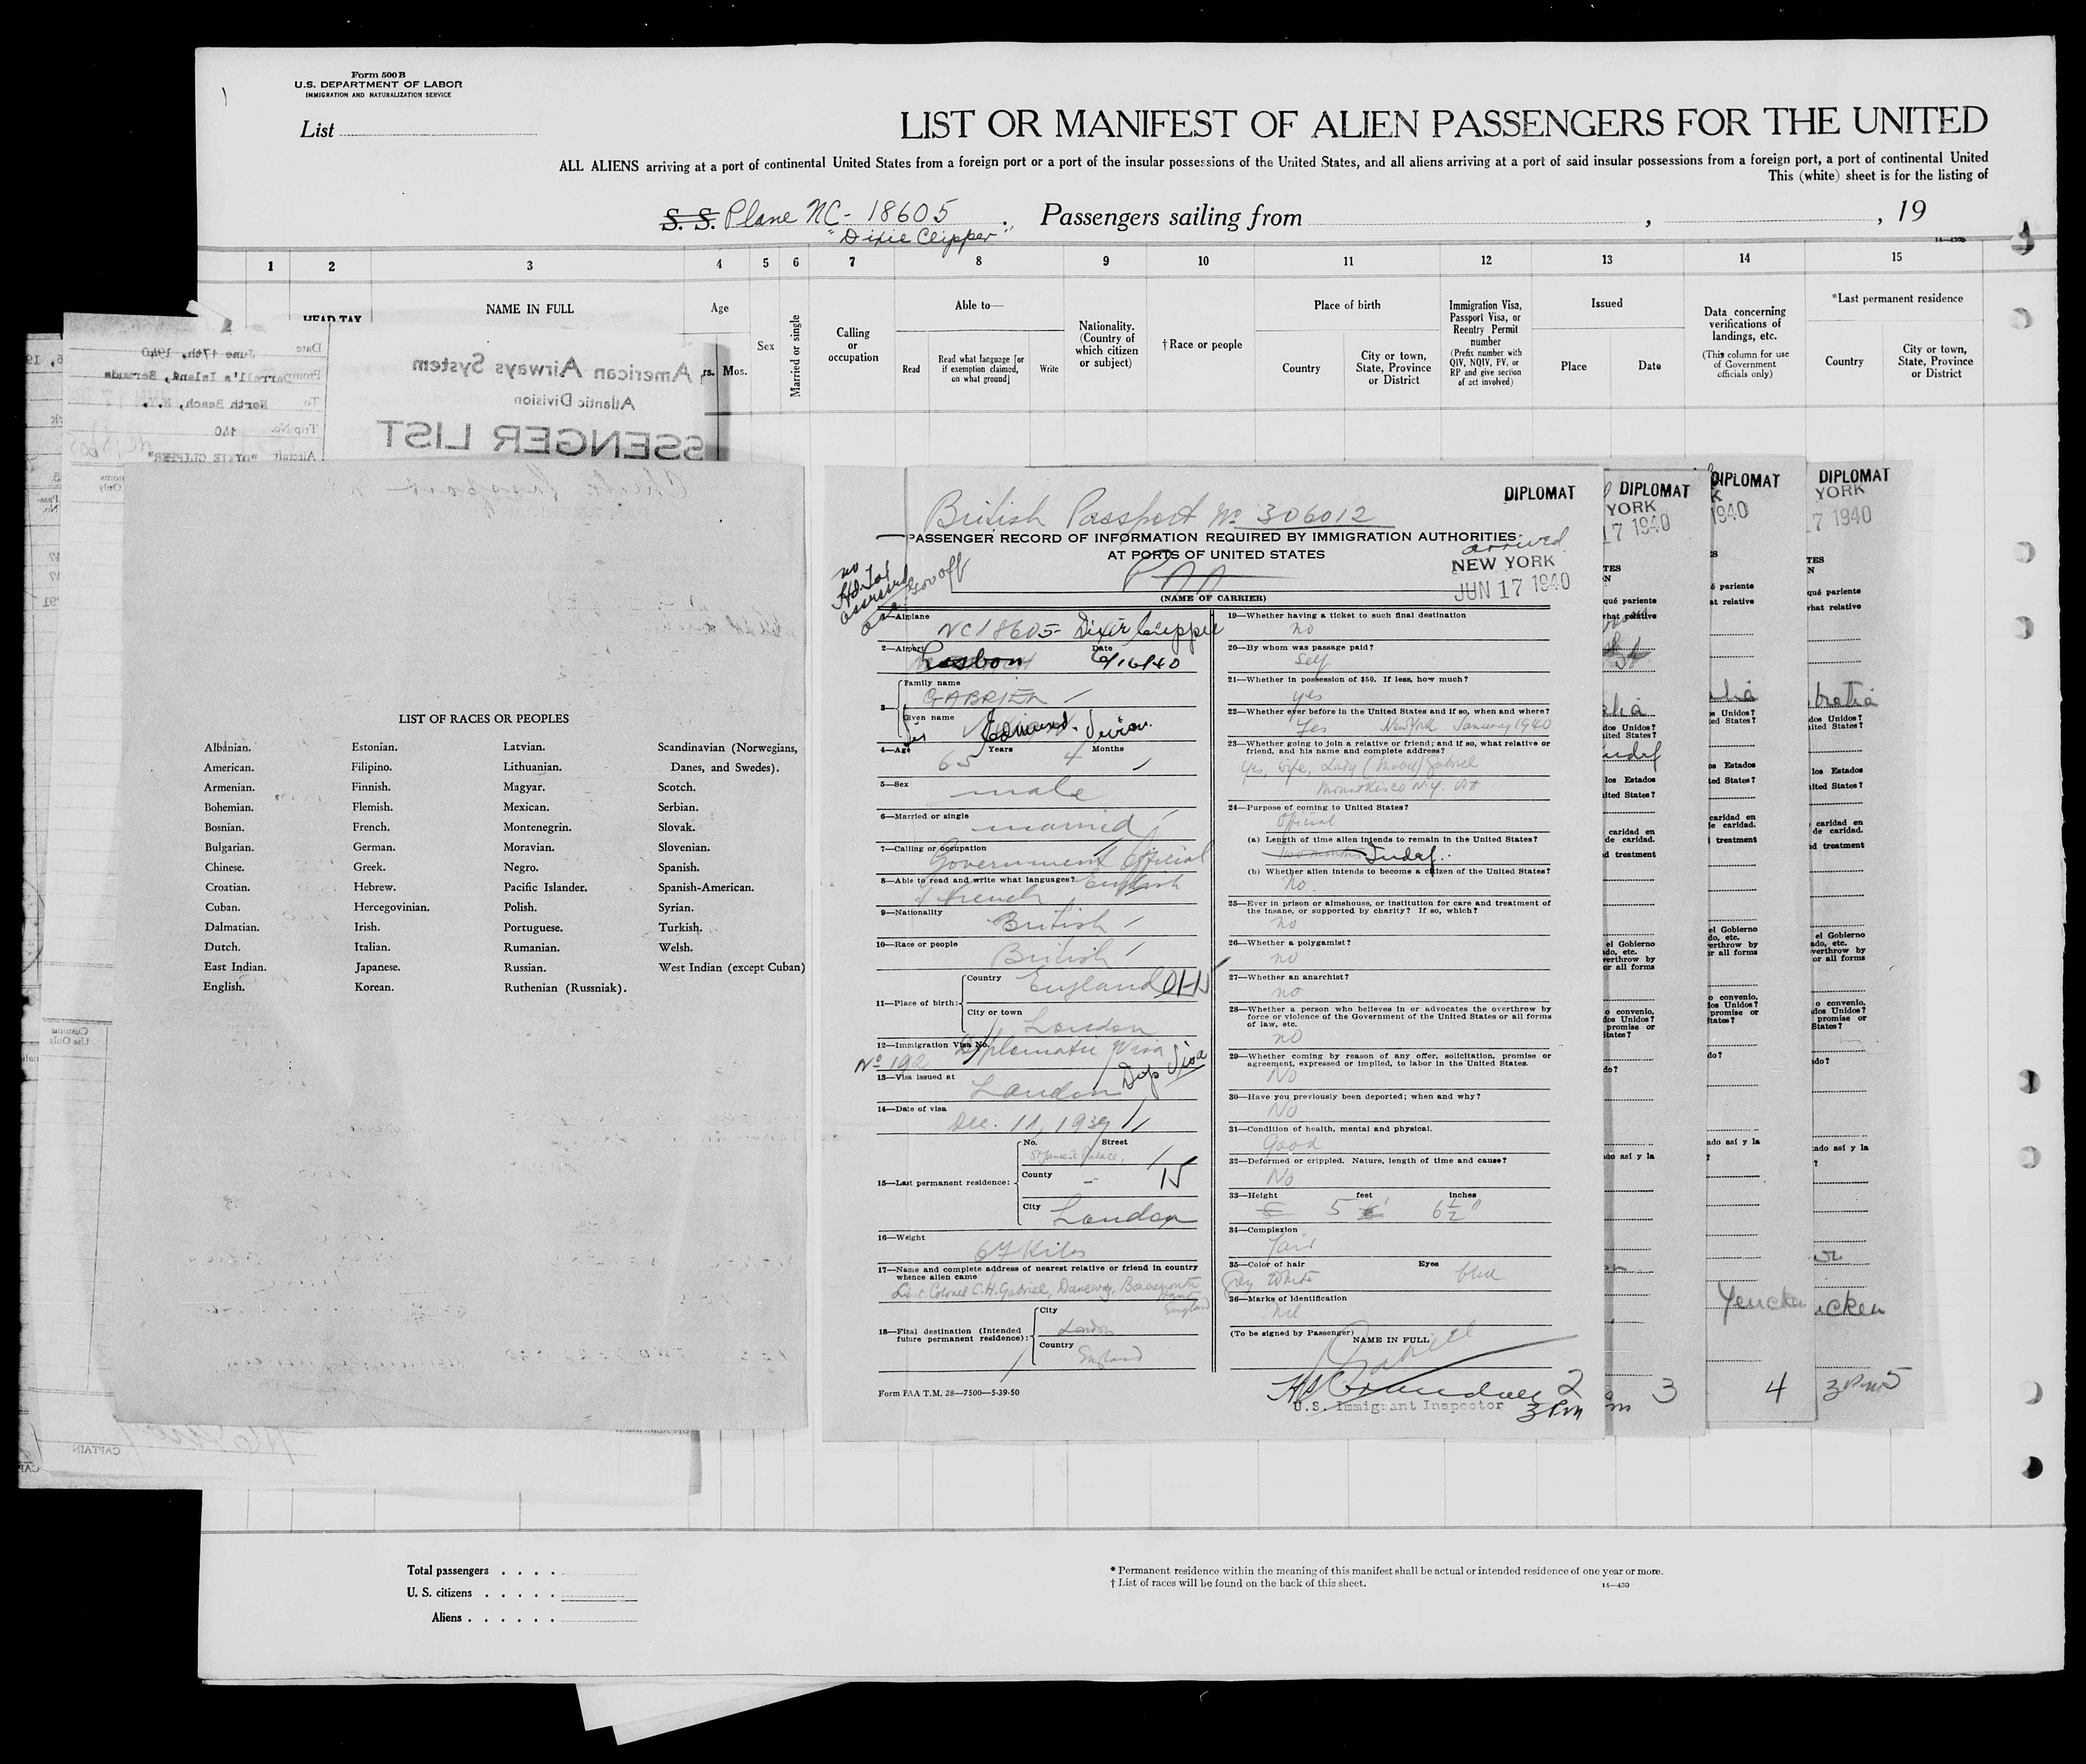 Form 500 B
U.S. DEPARTMENT OF LABOR
IMMIGRATION AND NATURALIZATION SERVICE
List
LIST OR MANIFEST OF ALIEN PASSENGERS FOR THE UNITED
ALL ALIENS arriving at a port of continental United States from a foreign port or a port of the insular possessions of the United States, and all aliens arriving at a port of said insular possessions from a foreign port, a port of continental United
This (white) sheet is for the listing of
S. S. Plane NC-18605 Passengers sailing from , , 19
"Dixie Clipper"
1 2 3 4 5 6 7 8 9 10 11 12 13 14 15
HEAD TAX
NAME IN FULL
Age
Mos.
Sex
Married or single
Calling or occupation
Able to—
Read
Read what language [or if exemption claimed, on what ground]
Write
Nationality. (Country of which citizen or subject)
† Race or people
Place of birth
Country
City or town, State, Province or District
Immigration Visa, Passport Visa, or Reentry Permit number
(Prefix number with QIV, NQIV, PV, or RP and give section of act involved)
Issued
Place
Date
Data concerning verifications of landings, etc.
(This column for use of Government officials only)
*Last permanent residence
Country
City or town, State, Province or District
American Airways System
Atlantic Division
SSENGER LIST
Date June 17th, 1940
From Darrell's Island, Bermuda
To North Beach, N.Y.
Trip No. 140
Aircraft "DIXIE CLIPPER"
Customs Use Only
CAPTAIN
LIST OF RACES OR PEOPLES
Albanian. Estonian. Latvian. Scandinavian (Norwegians,
American. Filipino. Lithuanian. Danes, and Swedes).
Armenian. Finnish. Magyar. Scotch.
Bohemian. Flemish. Mexican. Serbian.
Bosnian. French. Montenegrin. Slovak.
Bulgarian. German. Moravian. Slovenian.
Chinese. Greek. Negro. Spanish.
Croatian. Hebrew. Pacific Islander. Spanish-American.
Cuban. Hercegovinian. Polish. Syrian.
Dalmatian. Irish. Portuguese. Turkish.
Dutch. Italian. Rumanian. Welsh.
East Indian. Japanese. Russian. West Indian (except Cuban)
English. Korean. Ruthenian (Russniak).
DIPLOMAT
British Passport No 306012
PASSENGER RECORD OF INFORMATION REQUIRED BY IMMIGRATION AUTHORITIES
AT PORTS OF UNITED STATES
arrived
NEW YORK
JUN 17 1940
(NAME OF CARRIER)
no
Hd Tax
Gov off
1—Airplane NC18605- Dixie Clipper
2—Airport Lisbon Date 6/16/40
3— Family name GABRIEL
Given name Edmund Vivian
4—Age 65 Years 4 Months
5—Sex male
6—Married or single married
7—Calling or occupation Government Official
8—Able to read and write what languages? English
& French
9—Nationality British
10—Race or people British
11—Place of birth: Country England
City or town London
12—Immigration Visa No. Diplomatic Visa
No 192
13—Visa issued at London Dip Visa
14—Date of visa Dec. 11, 1939
15—Last permanent residence: No. Street St James's Palace,
County –
City London
16—Weight 67 Kilos
17—Name and complete address of nearest relative or friend in country
whence alien came
Lieut. Colonel C.H. Gabriel, Bournemouth
Hants
England
18—Final destination (Intended
future permanent residence): City London
Country England
Form PAA T.M. 28—7500—5-39-50
19—Whether having a ticket to such final destination
No
20—By whom was passage paid?
Self
21—Whether in possession of $50. If less, how much?
yes
22—Whether ever before in the United States and if so, when and where?
Yes New York January 1940
23—Whether going to join a relative or friend; and if so, what relative or
friend, and his name and complete address?
Yes, wife, Lady Gabriel
Mount Kisco N.Y.
24—Purpose of coming to United States?
Official
(a) Length of time alien intends to remain in the United States?
Two months Indef.
(b) Whether alien intends to become a citizen of the United States?
No.
25—Ever in prison or almshouse, or institution for care and treatment of
the insane, or supported by charity? If so, which?
no
26—Whether a polygamist?
no
27—Whether an anarchist?
no
28—Whether a person who believes in or advocates the overthrow by
force or violence of the Government of the United States or all forms
of law, etc.
no
29—Whether coming by reason of any offer, solicitation, promise or
agreement, expressed or implied, to labor in the United States.
No
30—Have you previously been deported; when and why?
No
31—Condition of health, mental and physical.
Good
32—Deformed or crippled. Nature, length of time and cause?
No
33—Height 5 feet 6½ inches
34—Complexion
Fair
35—Color of hair Grey White Eyes blue
36—Marks of identification
Nil
(To be signed by Passenger) NAME IN FULL
Gabriel
U.S. Immigrant Inspector
2
3 Pm
DIPLOMAT
YORK
17 1940
3
DIPLOMAT
1940
Yencken
4
DIPLOMAT
YORK
7 1940
cken
3 Pm 5
Total passengers
U. S. citizens
Aliens
* Permanent residence within the meaning of this manifest shall be actual or intended residence of one year or more.
† List of races will be found on the back of this sheet.
14—430